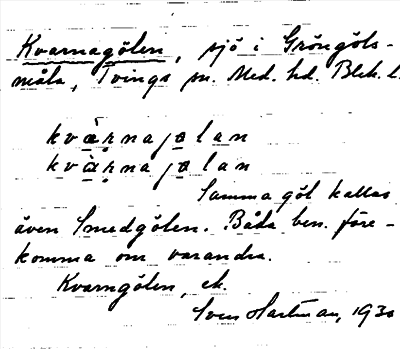 Kvarnagölen, sjö i Gröngöls-
måla, Tvings sn. Med. hd. Blek. l.
kvὰṛnajølan
kvὰṛnajølan
Samma göl kallas
även Smedgölen. Båda ben. före-
komma om varandra.
Kvarngölen, ek.
Sven Hartman, 1930